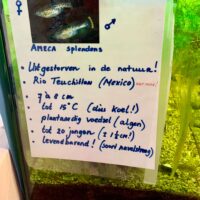 ♀
♂
Ameca splendens
• Uitgestorven in de natuur!
• Rio Teuchitlan (Mexico)
• 7 à 8 cm
• tot 15°C (dus koel!)
• plantaardig voedsel (algen)
• tot 20 jongen (2 1/2 cm!)
levendbarend! (soort navelstreng)